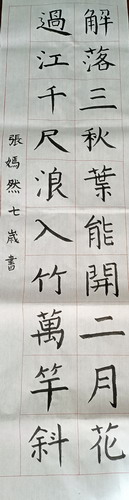 解落三秋葉能開二月花
過江千尺浪入竹萬竿斜
張嫣然七歲書